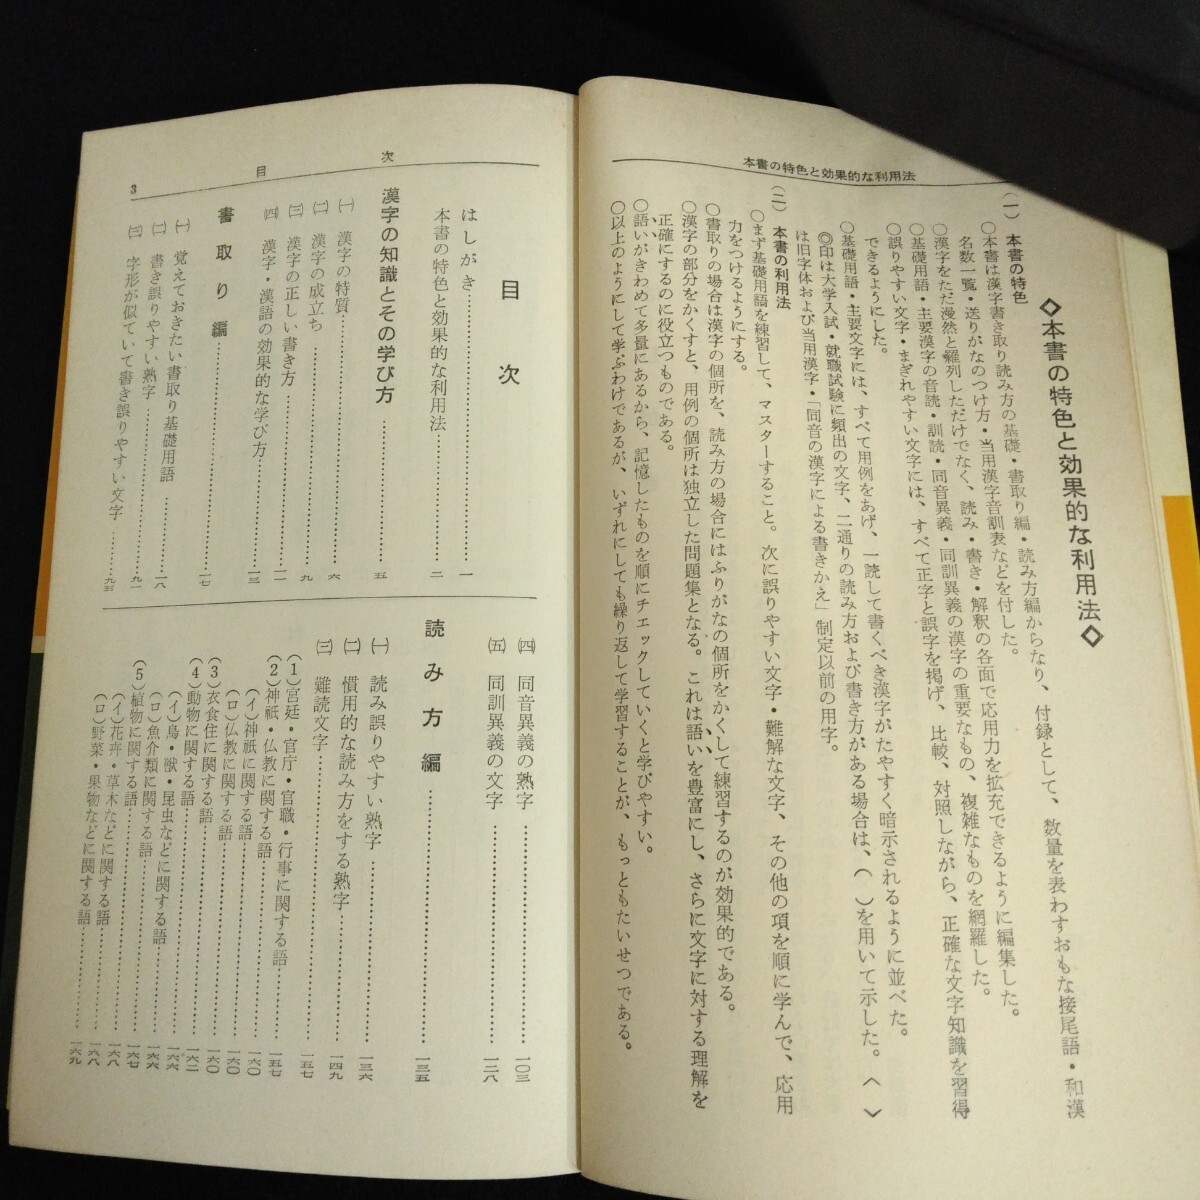 本書の特色と効果的な利用法
◇本書の特色と効果的な利用法◇
(一) 本書の特色
○本書は漢字書き取り読み方の基礎・書取り編・読み方編からなり、付録として、数量を表わすおもな接尾語・和漢
名数一覧・送りがなのつけ方・当用漢字音訓表などを付した。
○漢字をただ漫然と羅列しただけでなく、読み・書き・解釈の各面で応用力を拡充できるように編集した。
○基礎用語・主要漢字の音読・訓読・同音異義・同訓異義の漢字の重要なもの、複雑なものを網羅した。
○誤りやすい文字・まぎれやすい文字には、すべて正字と誤字を掲げ、比較、対照しながら、正確な文字知識を習得
できるようにした。
○基礎用語・主要文字には、すべて用例をあげ、一読して書くべき漢字がたやすく暗示されるように並べた。
◎印は大学入試・就職試験に頻出の文字、二通りの読み方および書き方がある場合は、( )を用いて示した。〈 〉
は旧字体および当用漢字・「同音の漢字による書きかえ」制定以前の用字。
(二) 本書の利用法
○まず基礎用語を練習して、マスターすること。次に誤りやすい文字・難解な文字、その他の項を順に学んで、応用
力をつけるようにする。
○書取りの場合は漢字の個所を、読み方の場合にはふりがなの個所をかくして練習するのが効果的である。
○漢字の部分をかくすと、用例の個所は独立した問題集となる。これは語いを豊富にし、さらに文字に対する理解を
正確にするのに役立つものである。
○語いがきわめて多量にあるから、記憶したものを順にチェックしていくと学びやすい。
○以上のようにして学ぶわけであるが、いずれにしても繰り返して学習することが、もっともたいせつである。
目 次 3
目 次
はしがき……一
本書の特色と効果的な利用法……二
漢字の知識とその学び方……五
(一) 漢字の特質……六
(二) 漢字の成立ち……九
(三) 漢字の正しい書き方……一一
(四) 漢字・漢語の効果的な学び方……一三
書取り編……一七
(一) 覚えておきたい書取り基礎用語……一八
(二) 書き誤りやすい熟字……九一
(三) 字形が似ていて書き誤りやすい文字……九五
(四) 同音異義の熟字……一〇三
(五) 同訓異義の文字……一二八
読み方編……一三五
(一) 読み誤りやすい熟字……一三六
(二) 慣用的な読み方をする熟字……一四九
(三) 難読文字……一五七
(1)宮廷・官庁・官職・行事に関する語……一五七
(2)神祇・仏教に関する語……一六〇
(イ)神祇に関する語……一六〇
(ロ)仏教に関する語……一六〇
(3)衣食住に関する語……一六〇
(4)動物に関する語……一六二
(イ)鳥・獣・昆虫などに関する語……一六六
(ロ)魚介類に関する語……一六六
(5)植物に関する語……一六七
(イ)花卉・草木などに関する語……一六八
(ロ)野菜・果物などに関する語……一六九